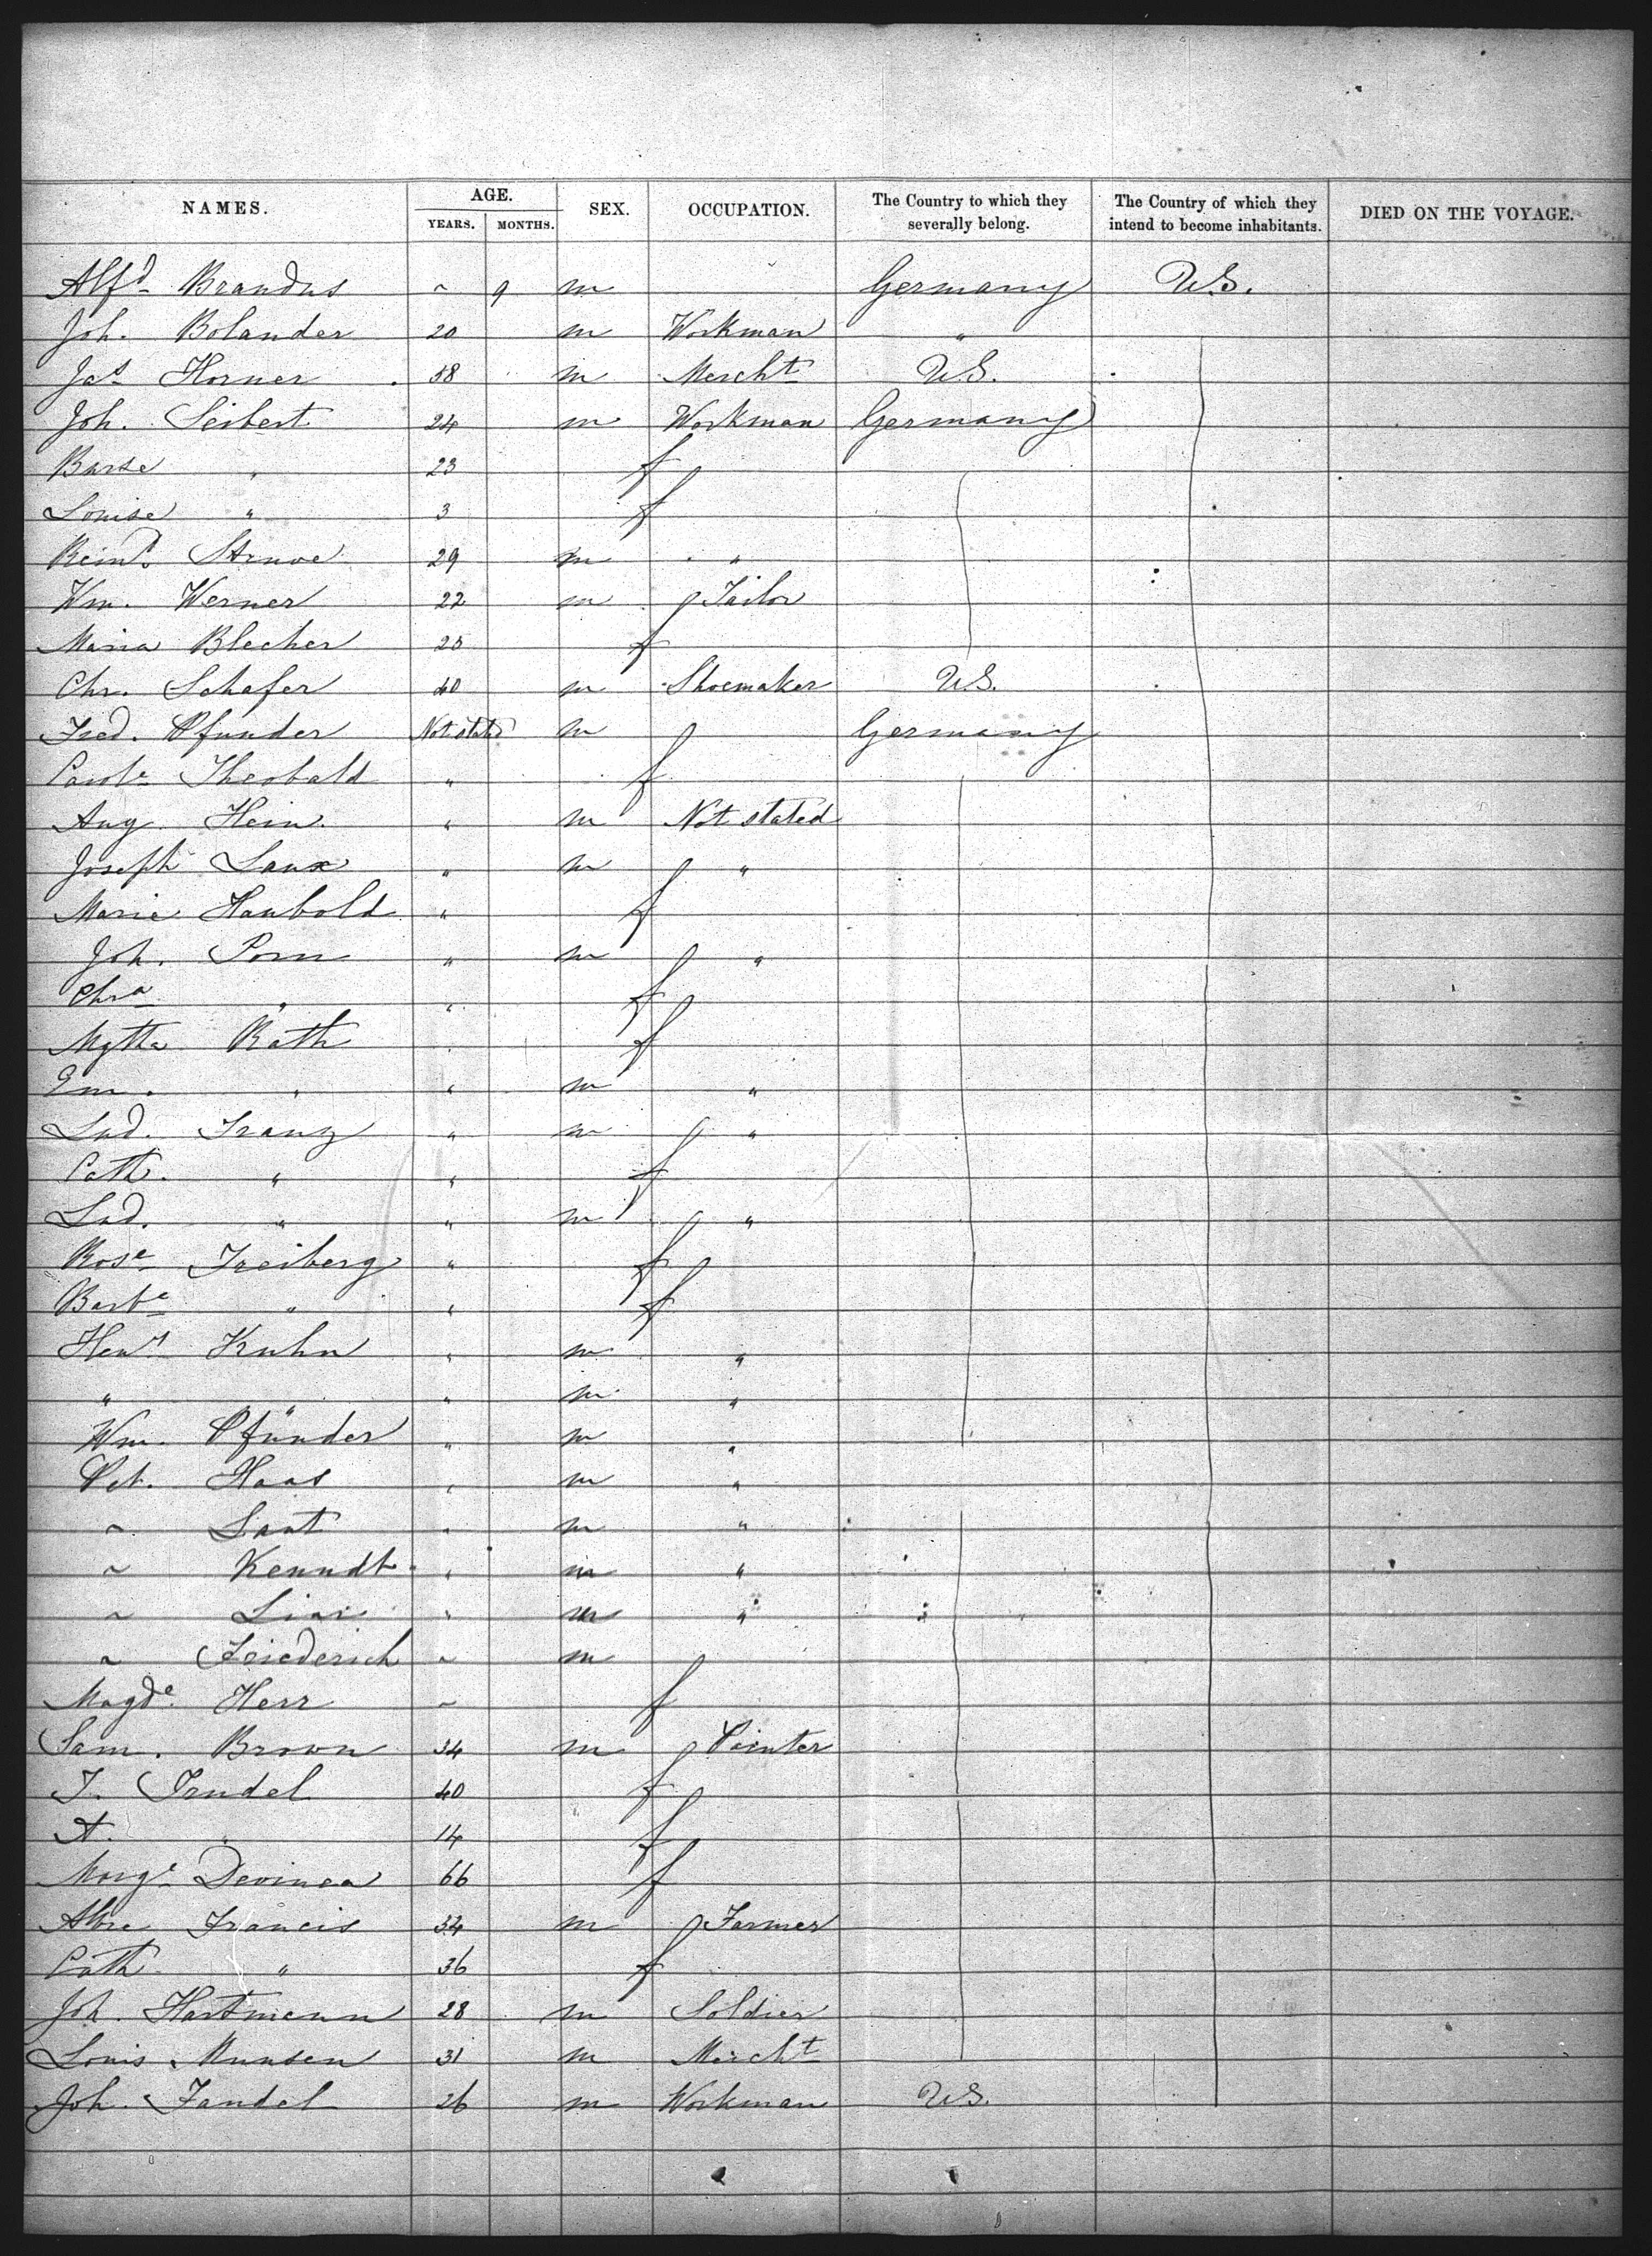 NAMES. AGE. SEX. OCCUPATION. The Country to which they severally belong. The Country of which they intend to become inhabitants. DIED ON THE VOYAGE.
YEARS. MONTHS.
Alfd Brandus ~ 9 m Germany U.S.
Joh. Bolander 20 m Workman "
Jas Horner 58 m Mercht U.S.
Joh. Seibert 24 m Workman Germany
Barse " 23 f
Louise " 3 f
Reind. Struve 29 m "
Wm. Werner 22 m Tailor
Maria Blecher 25 f
Chr. Schafer 40 m Shoemaker U.S.
Fred. Pfunder Not stated m Germany
Carole Theobald " f
Aug. Hein " m Not stated
Joseph Laux " m "
Marie Haubold " f
Joh. Porn " m "
Chra " " f
Mgtha Rath " f
Em. " " m "
Lud. Franz " m "
Cath. " " f
Lud. " " m "
Rose Freiberg " f
Barbe " " f
Heny Kuhn " m "
" " " m "
Wm. Pfünder " m "
Pet. Haas " m "
~ Lant " m "
~ Kenndt " m "
~ Liai " m "
~ Friederich ~ m
Magde. Herr ~ f
Sam. Brown 34 m Painter
T. Trudel 40 f
A. " 14 f
Marge Devinea 66 f
Abre Francis 34 m Farmer
Cath " 36 f
Joh. Hartmann 28 m Soldier
Louis Munsen 31 m Mercht
Joh. Fandel 26 m Workman U.S.